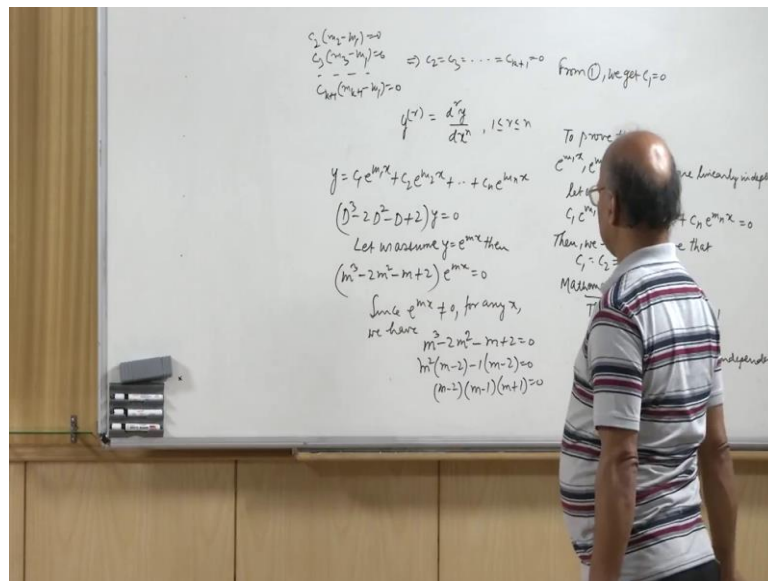 c₂(m₂-m₁)=0
c₃(m₃-m₁)=0 ⇒ c₂=c₃=·····=cₖ₊₁=0
- - - -
cₖ₊₁(mₖ₊₁-m₁)=0
From ①, we get c₁=0
y⁽ʳ⁾ = dʳy/dxⁿ , 1≤r≤n
y = c₁e^{m₁x}+c₂e^{m₂x}+··+cₙe^{mₙx}
(D³-2D²-D+2)y=0
Let us assume y=e^{mx} then
(m³-2m²-m+2)e^{mx}=0
Since e^{mx}≠0, for any x,
we have
m³-2m²-m+2=0
m²(m-2)-1(m-2)=0
(m-2)(m-1)(m+1)=0
To prove
e^{m₁x}, are linearly indep
let
c₁e^{m₁ + cₙe^{mₙx}=0
Then, we that
c₁=c₂=
independ